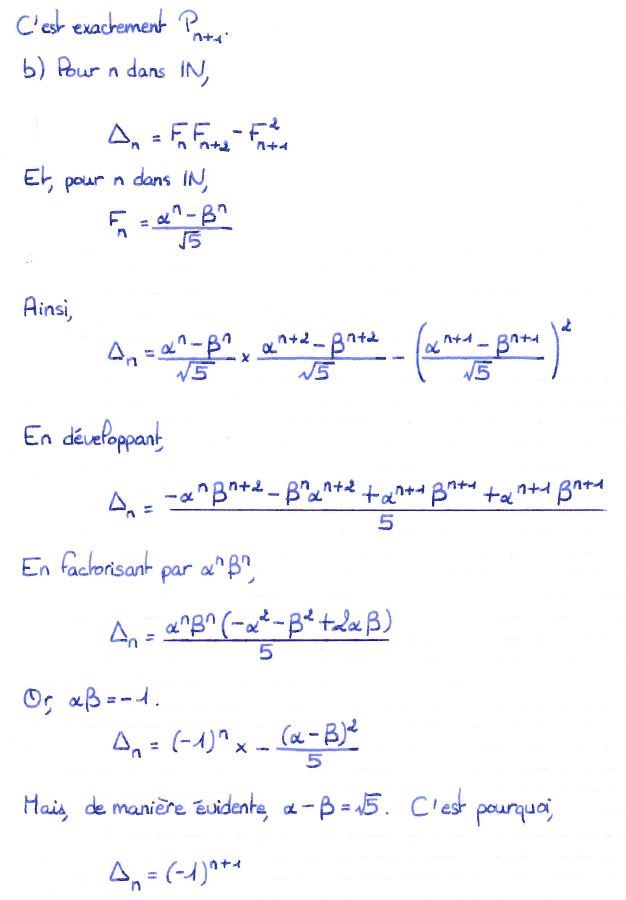 C'est exactement P_{n+1}.
b) Pour n dans IN,
Δ_n = F_n F_{n+2} - F_{n+1}^2
Et, pour n dans IN,
F_n = \frac{α^n - β^n}{√5}
Ainsi,
Δ_n = \frac{α^n - β^n}{√5} × \frac{α^{n+2} - β^{n+2}}{√5} - (\frac{α^{n+1} - β^{n+1}}{√5})^2
En développant,
Δ_n = \frac{-α^n β^{n+2} - β^n α^{n+2} + α^{n+1} β^{n+1} + α^{n+1} β^{n+1}}{5}
En factorisant par α^n β^n,
Δ_n = \frac{α^n β^n (-α^2 - β^2 + 2αβ)}{5}
Or, αβ = -1.
Δ_n = (-1)^n × - \frac{(α - β)^2}{5}
Mais, de manière évidente, α - β = √5. C'est pourquoi,
Δ_n = (-1)^{n+1}